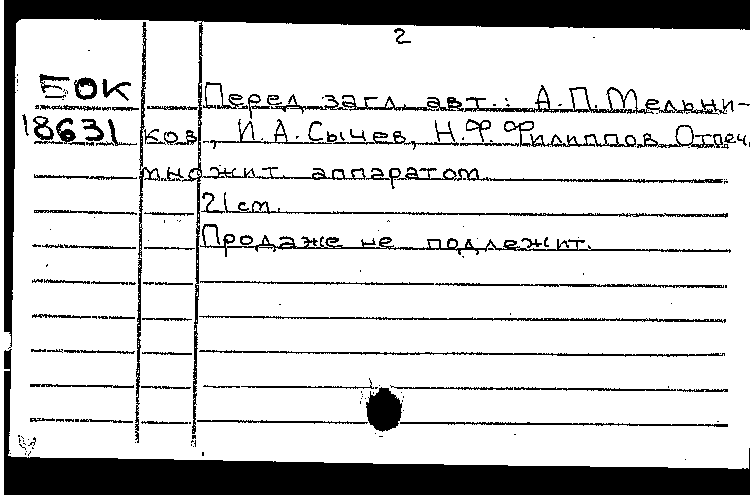 2
БОК Перед загл. авт.: А.П.Мельни-
18631 ков, И.А.Сычев, Н.Ф.Филиппов Отпеч.
множит. аппаратом
21 см.
Продаже не подлежит.